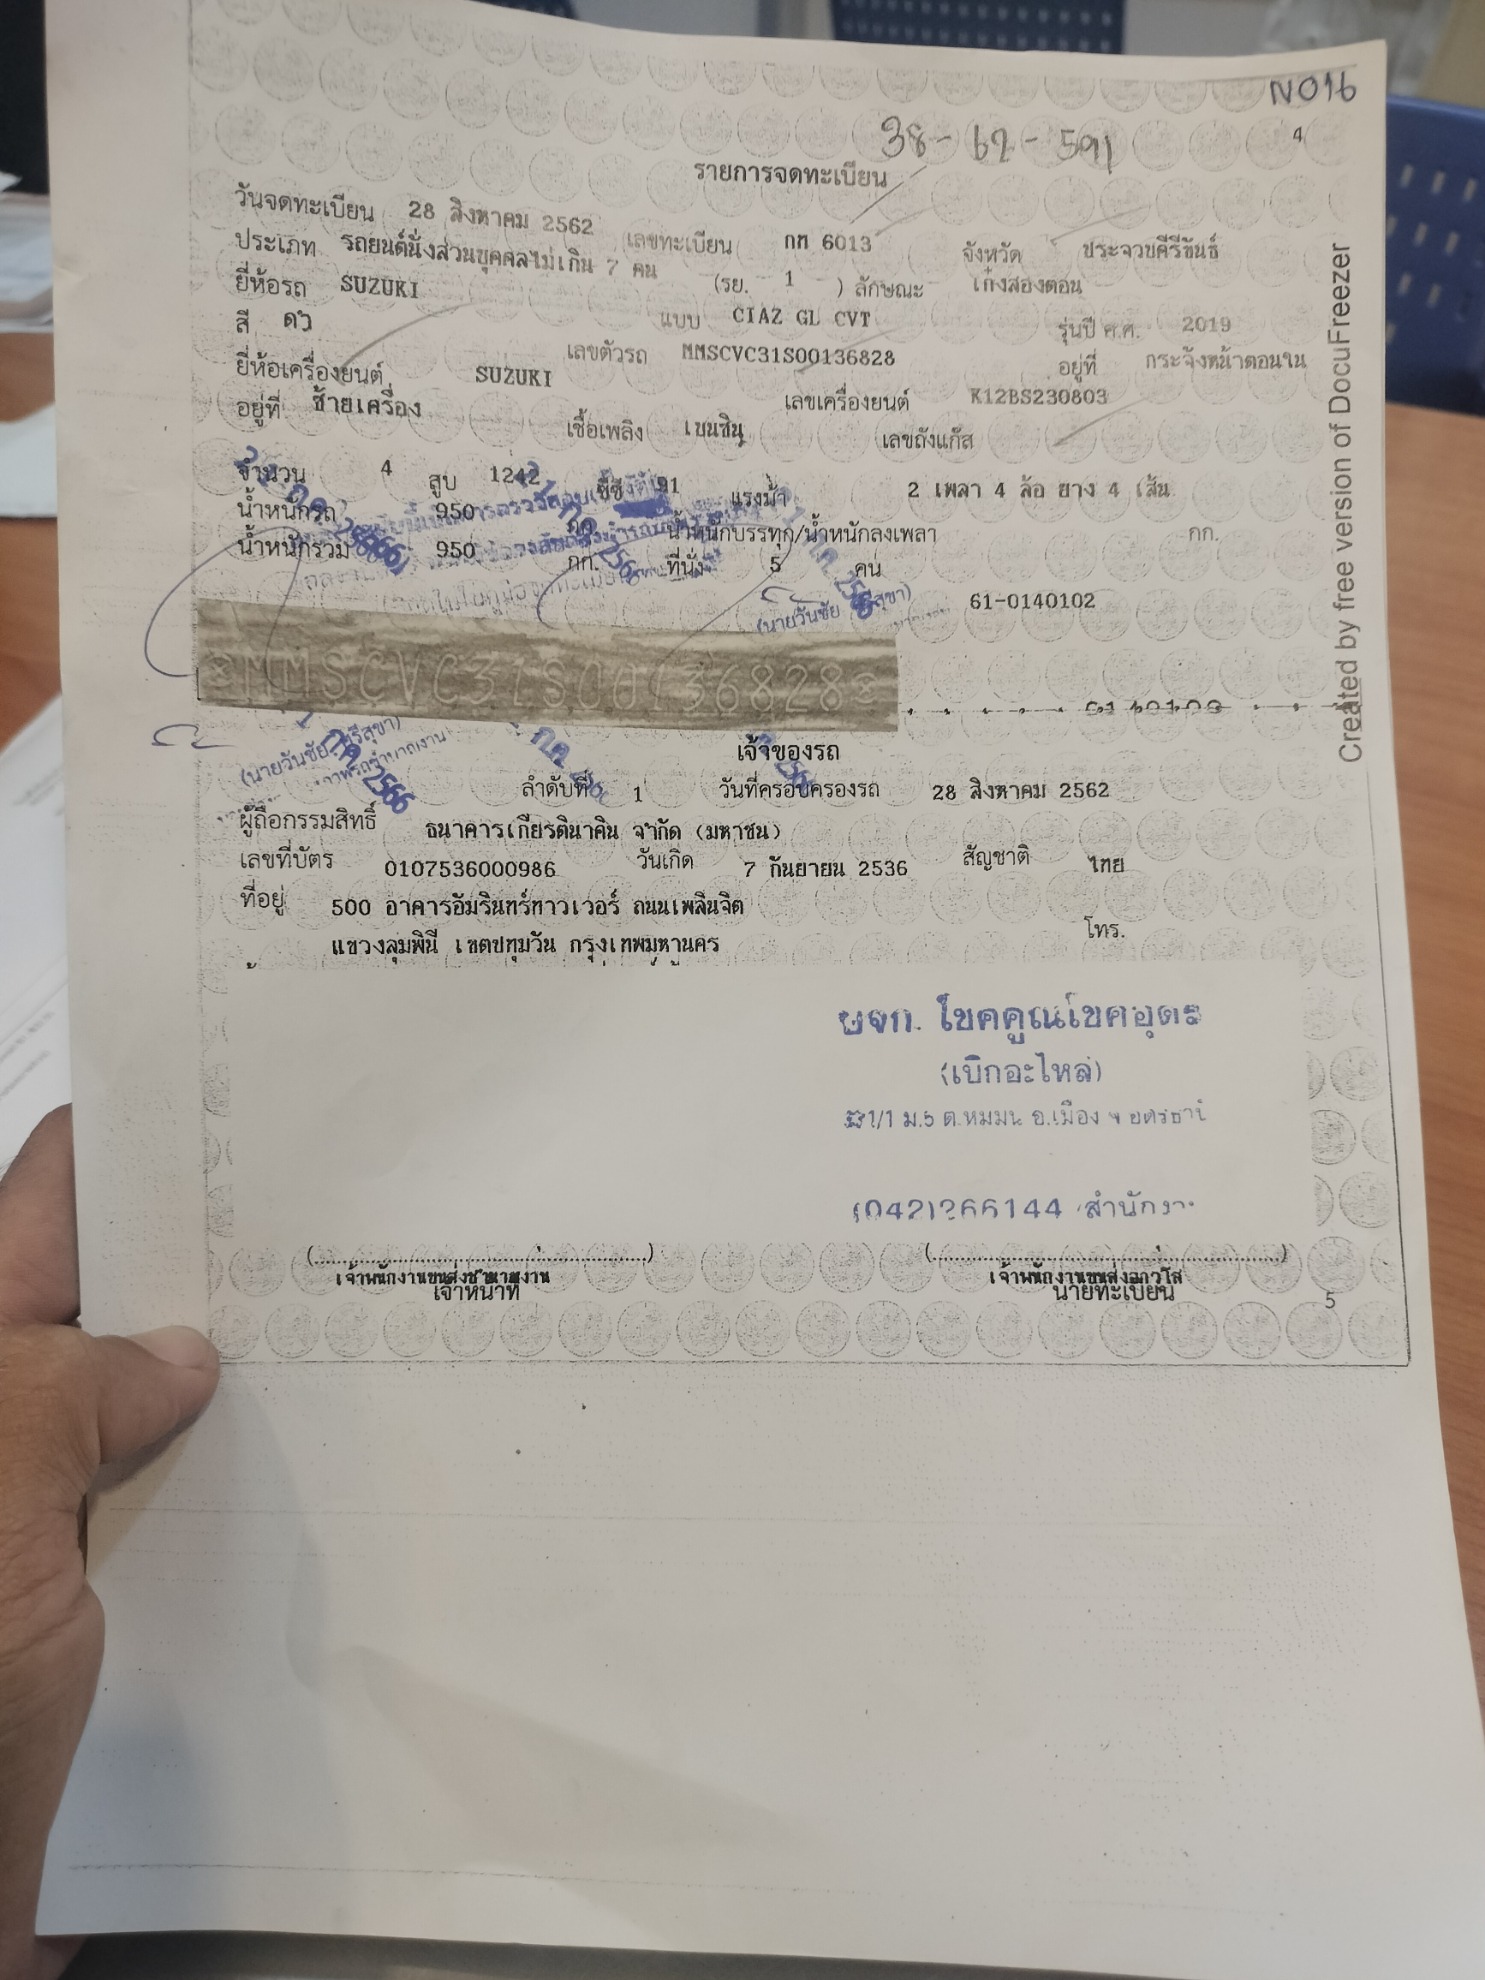 N016
38-62-591
4
รายการจดทะเบียน
วันจดทะเบียน 28 สิงหาคม 2562 เลขทะเบียน กM 6013 จังหวัด ประจวบคีรีขันธ์
ประเภท รถยนต์นั่งส่วนบุคคลไม่เกิน 7 คน (รย. 1 ) ลักษณะ เก๋งสองตอน
ยี่ห้อรถ SUZUKI แบบ CIAZ GL CVT รุ่นปี ค.ศ. 2019
สี เลขตัวรถ MMSCVC31S00136828 อยู่ที่ กระจังหน้าตอนใน
ยี่ห้อเครื่องยนต์ SUZUKI เลขเครื่องยนต์ K12BS230803
อยู่ที่ ซ้ายเครื่อง เชื้อเพลิง เบนซิน เลขถังแก๊ส
จำนวน 4 สูบ 1242 ซีซี 91 แรงม้า 2 เพลา 4 ล้อ ยาง 4 เส้น
น้ำหนักรถ 950 กก. น้ำหนักบรรทุก/น้ำหนักลงเพลา กก.
น้ำหนักรวม 950 กก. ที่นั่ง 5 คน
61-0140102
MMSCVC31S00136828
เจ้าของรถ
ลำดับที่ 1 วันที่ครอบครองรถ 28 สิงหาคม 2562
ผู้ถือกรรมสิทธิ์ ธนาคารเกียรตินาคิน จำกัด (มหาชน)
เลขที่บัตร 0107536000986 วันเกิด 7 กันยายน 2536 สัญชาติ ไทย
ที่อยู่ 500 อาคารอัมรินทร์ทาวเวอร์ ถนนเพลินจิต
แขวงลุมพินี เขตปทุมวัน กรุงเทพมหานคร โทร.
หจก. โชคคูณโชคอุดร
(เบิกอะไหล่)
ม.5 ต.หมูม่น อ.เมือง จ อุดรธานี
(042)266144 สำนักงาน
(....................) (....................)
เจ้าพนักงานขนส่งชำนาญงาน เจ้าพนักงานขนส่งอาวุโส
เจ้าหน้าที่ นายทะเบียน
5
Created by free version of DocuFreezer